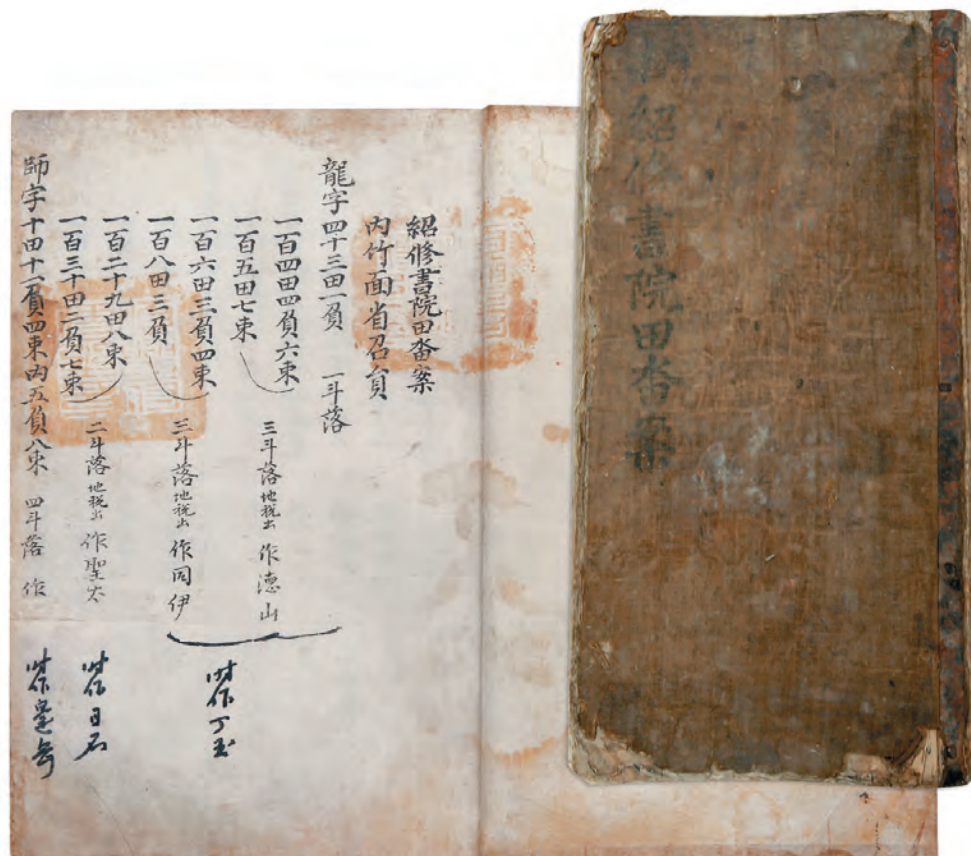 紹修書院田畓案
紹修書院田畓案
內竹面省召員
龍字四十三田一負 一斗落
一百四田四負六束
一百五田七束 三斗落地税出 作德山
一百六田三負四束
一百八田三負 三斗落地税出 作同伊
時作丁玉
一百二十九田八束
一百三十田二負七束 二斗落地税出 作聖太
時作日石
師字十田十一負四束內五負八束 四斗落 作
時作